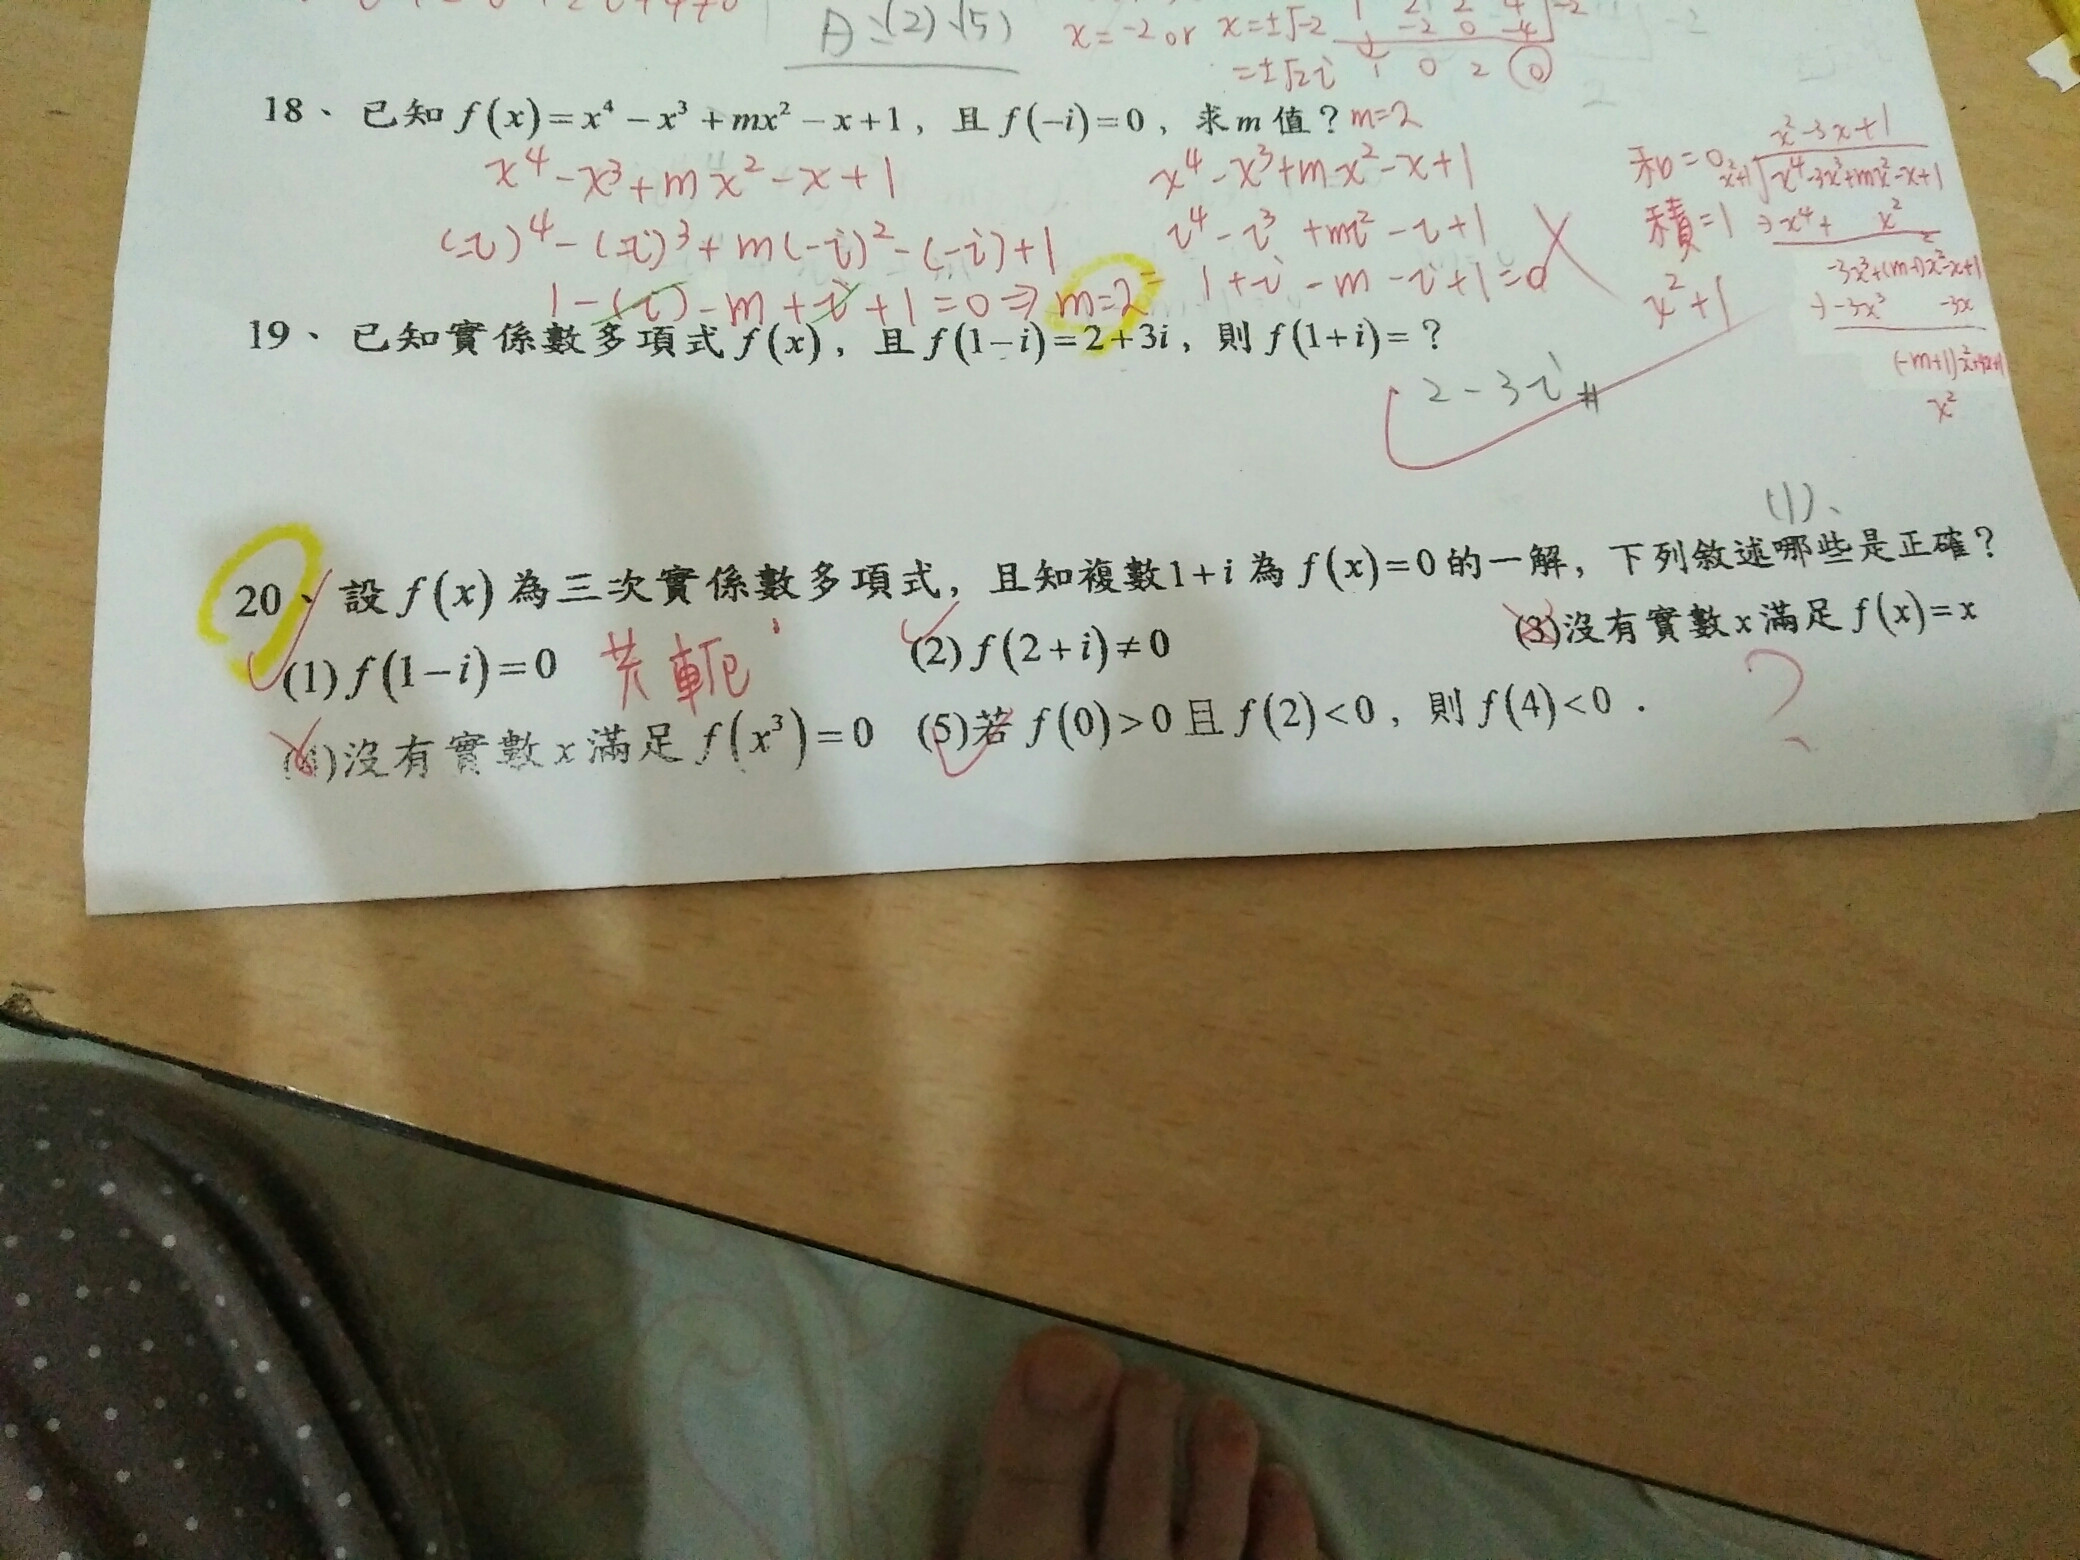 A:(2)(5)
x=-2 or x=±√-2
=±√2i
1 2 2 4 |-2
-2 0 -4
1 0 2 0
18、已知 f(x)=x⁴-x³+mx²-x+1，且 f(-i)=0，求 m 值？m=2
x⁴-x³+mx²-x+1
(-i)⁴-(-i)³+m(-i)²-(-i)+1
1-(i)-m+i+1=0⇒m=2
x⁴-x³+mx²-x+1
i⁴-i³+mi²-i+1
=1+i-m-i+1=0
和=0
積=1
x²+1
x²-3x+1
x²+1 x⁴-3x³+mx²-x+1
→x⁴+ x²
-3x³+(m-1)x²-x+1
→-3x³ -3x
x²
19、已知實係數多項式 f(x)，且 f(1-i)=2+3i，則 f(1+i)=？
2-3i #
(1)、
20、設 f(x) 為三次實係數多項式，且知複數1+i 為 f(x)=0 的一解，下列敘述哪些是正確？
(1) f(1-i)=0 共軛 (2) f(2+i)≠0 (3)沒有實數 x 滿足 f(x)=x
?
(4)沒有實數 x 滿足 f(x³)=0 (5)若 f(0)>0 且 f(2)<0，則 f(4)<0．